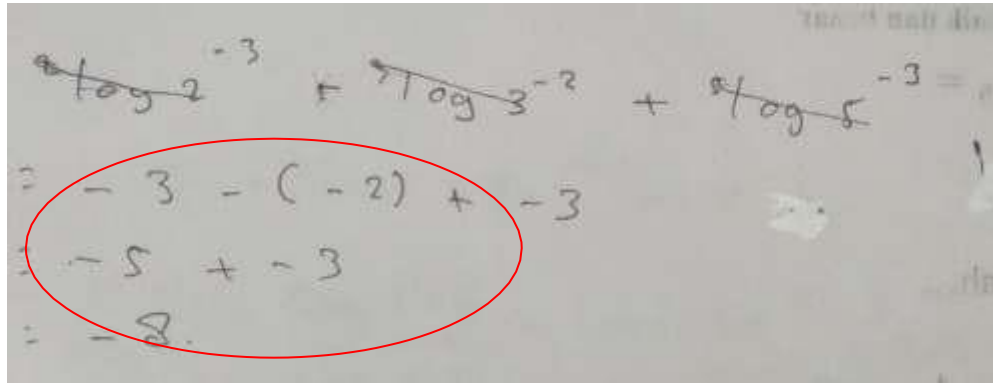 ²log 2⁻³ + ³log 3⁻² + ⁵log 5⁻³
= -3 - (-2) + -3
= -5 + -3
= -8.